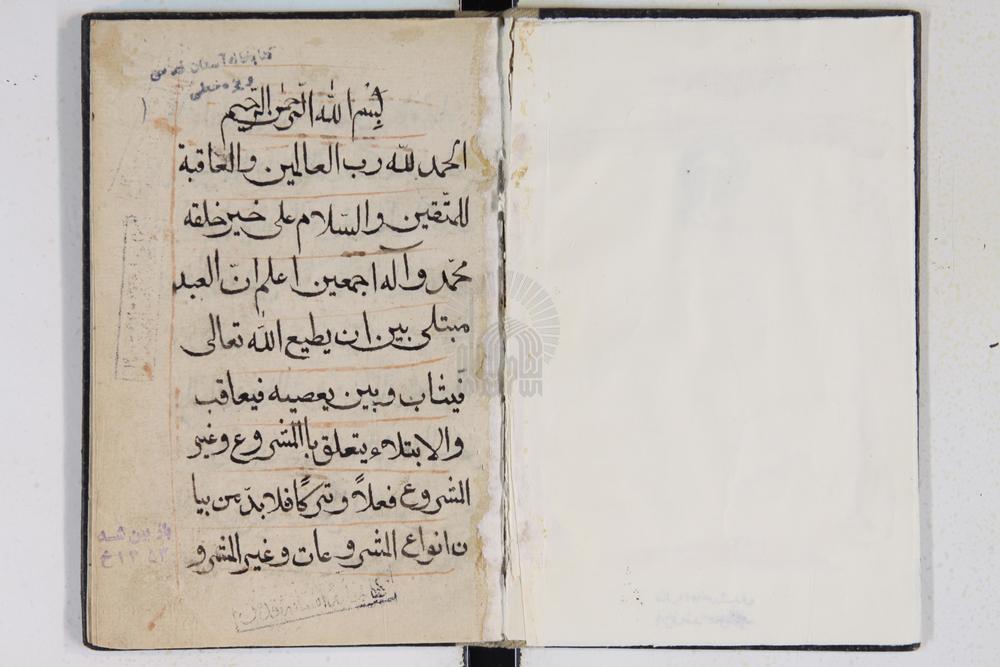 کتابخانه آستان قدس
بِسْمِ اللّه الرّحمٰن الرّحيم
الحمد للّه رب العالمين والعاقبة
للمتّقين والسّلام على خير خلقه
محمّد وآله اجمعين اعلم انّ العبد
مبتلى بين ان يطيع اللّه تعالى
فيثاب وبين يعصيه فيعاقب
والابتلاء يتعلق بالمشروع وغير
المشروع فعلاً وتركًا فلا بدّ من بيا
ن انواع المشروعات وغير المشرو
باز بین شد
۱۳۵۳ خ